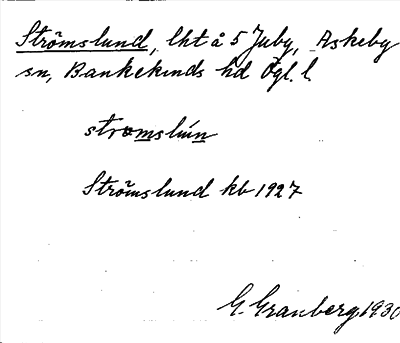 Strömslund, lht å 5 Juby, Askeby
sn, Bankekinds hd Ögl. l.
stromslun
Strömslund kb 1927
G. Granberg 1930